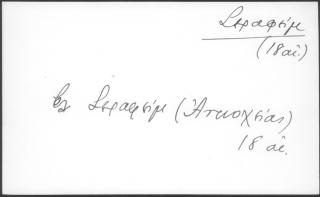 Σεραφείμ
(18 αἰ.)
βλ Σεραφείμ (Ἀντιοχείας)
18 αἰ.